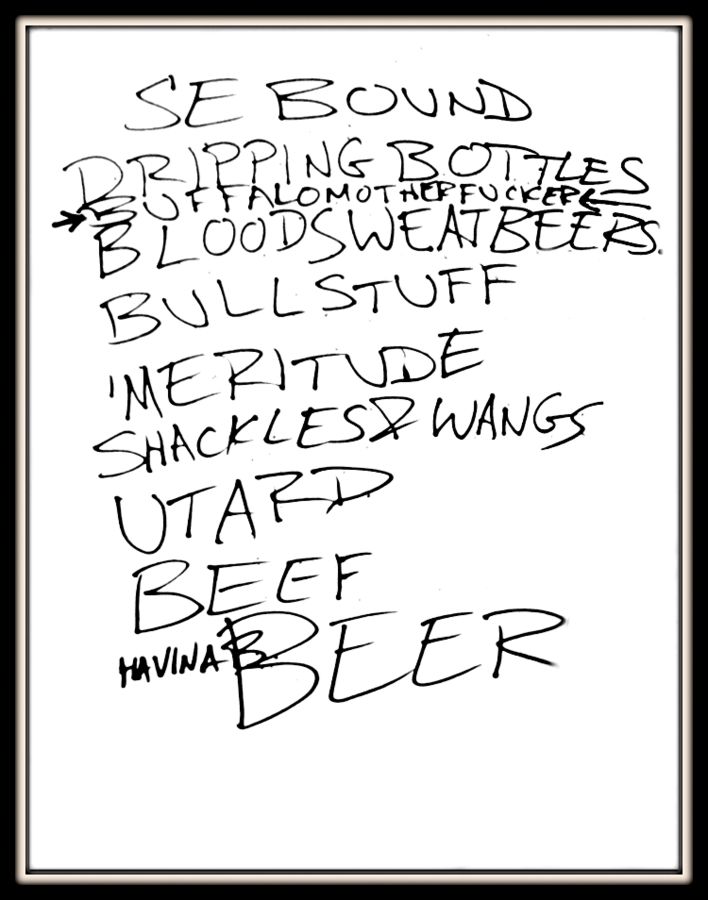 SE BOUND
DRIPPING BOTTLES
BUFFALOMOTHERFUCKER
BLOODSWEATBEERS.
BULLSTUFF
'MERITUDE
SHACKLES & WANGS
UTARD
BEEF
HAVINA BEER